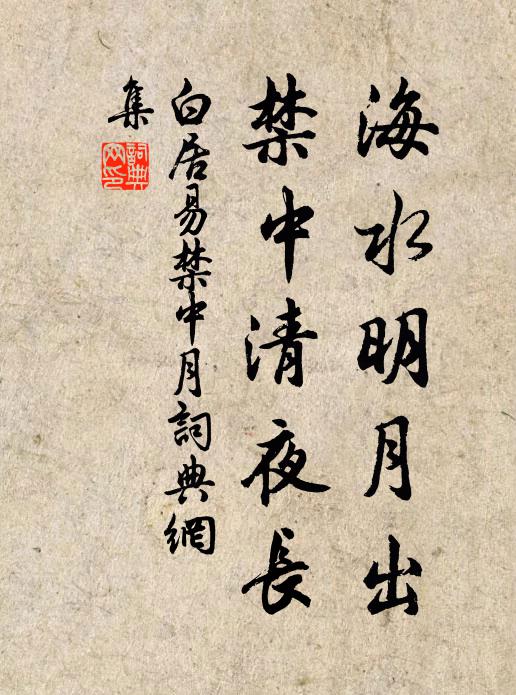 海水明月出
禁中清夜長
白居易禁中月詞典網
集
詞典
網印